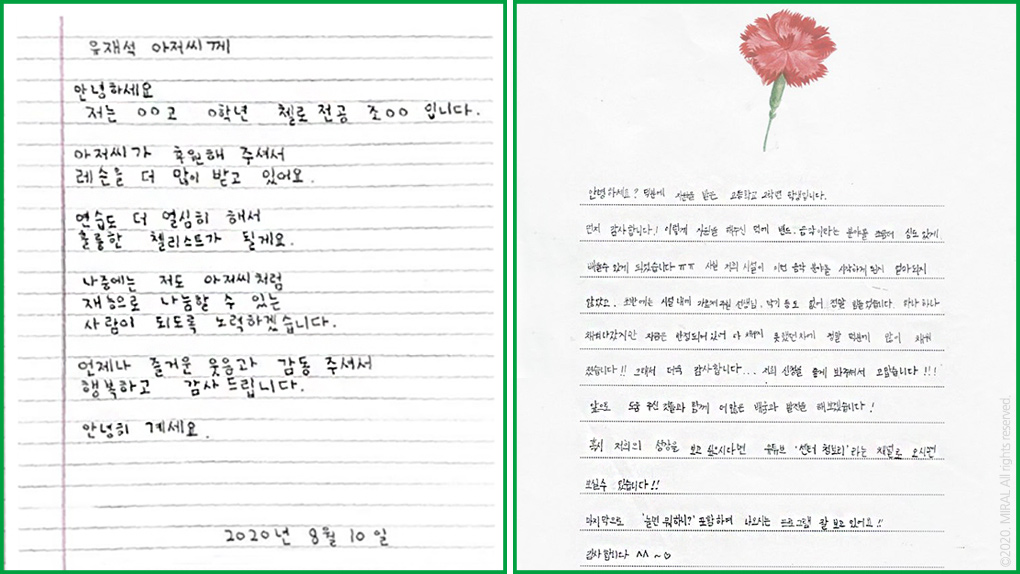 유재석 아저씨께
안녕하세요
저는 OO고 O학년 첼로 전공 조OO 입니다.
아저씨가 후원해 주셔서
레슨을 더 많이 받고 있어요.
연습도 더 열심히 해서
훌륭한 첼리스트가 될게요.
나중에는 저도 아저씨처럼
재능으로 나눔할 수 있는
사람이 되도록 노력하겠습니다.
언제나 즐거운 웃음과 감동 주셔서
행복하고 감사드립니다.
안녕히 계세요.
2020년 8월 10일
안녕하세요? 덕분에 지원을 받은 고등학교 2학년 학생입니다.
먼저 감사합니다! 이렇게 지원을 해주신 덕에 밴드, 음악이라는 분야를 조금더 심도 있게
배울수 있게 되었습니다 ㅠㅠ 사실 저희 시설이 이런 음악 분야를 시작하게 된지 얼마되지
않았고, 초반에는 시설 내에 가르쳐주실 선생님, 악기 등도 없어 정말 힘들었습니다. 하나 하나
채워나갔지만 지금은 안정되어 있어 더 채우지 못했던차에 정말 덕분에 많이 채워
졌습니다!! 그래서 더욱 감사합니다... 저희 신청을 좋게 봐주셔서 고맙습니다!!!
앞으로 도움 주신 것들과 함께 더 많은 배움과 발전을 해보겠습니다!
혹시 저희의 성장을 보고 싶으시다면 유튜브 '센터 청보리'라는 채널로 오시면
보실수 있습니다!!
마지막으로 '놀면 뭐하니?' 포함하여 나오시는 프로그램 잘 보고 있어요!!
감사합니다 ^^ ~♡
©2020. MIRAL All rights reserved.